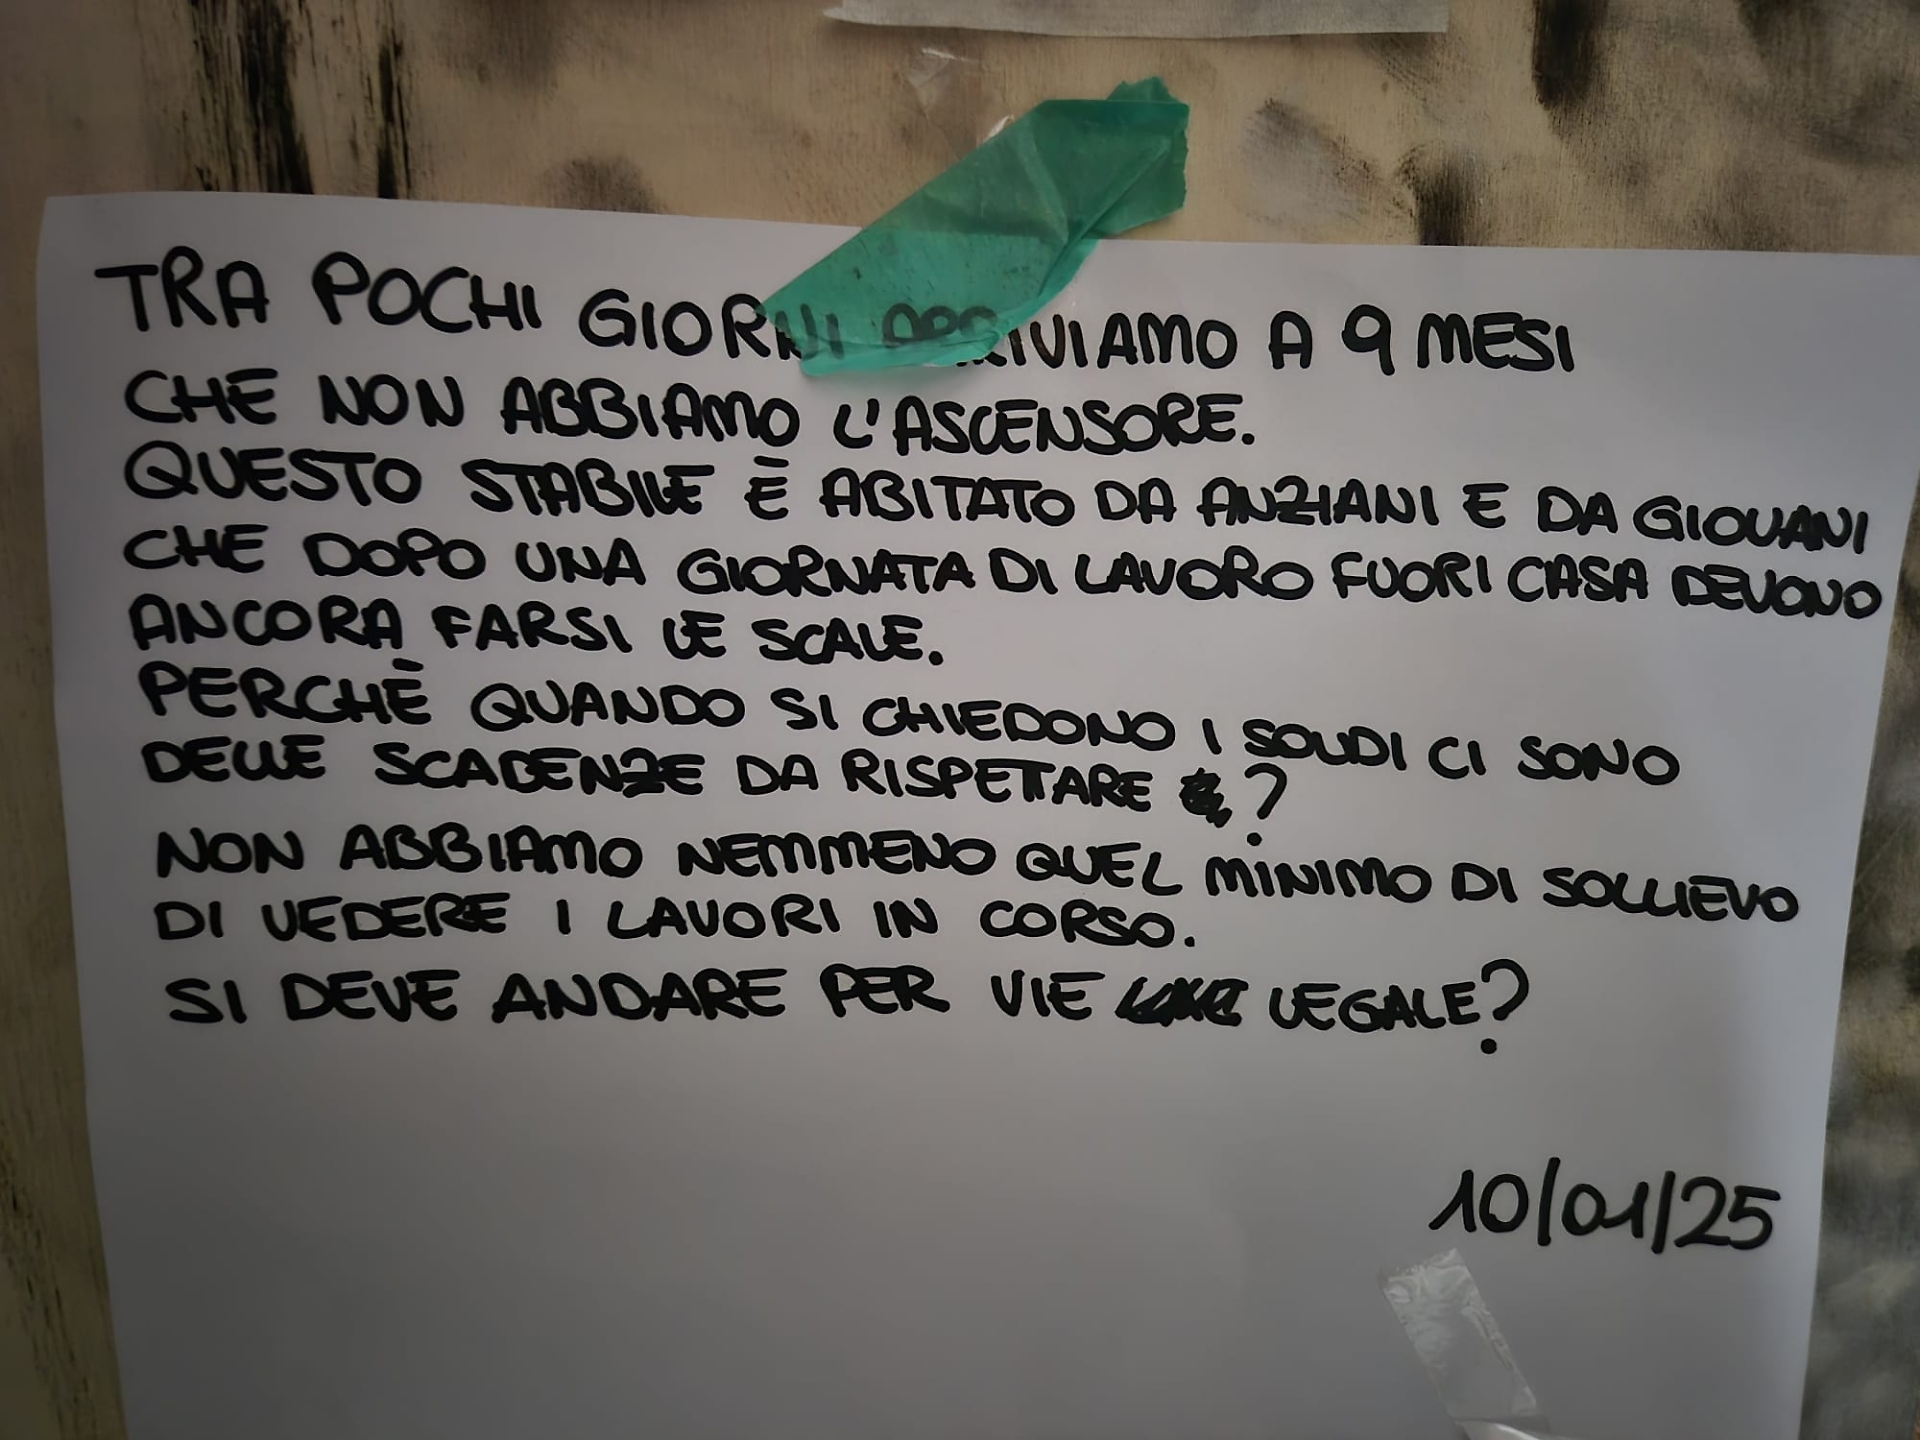 TRA POCHI GIORNI ARRIVIAMO A 9 MESI
CHE NON ABBIAMO L'ASCENSORE.
QUESTO STABILE È ABITATO DA ANZIANI E DA GIOVANI
CHE DOPO UNA GIORNATA DI LAVORO FUORI CASA DEVONO
ANCORA FARSI LE SCALE.
PERCHÈ QUANDO SI CHIEDONO I SOLDI CI SONO
DELLE SCADENZE DA RISPETTARE ?
NON ABBIAMO NEMMENO QUEL MINIMO DI SOLLIEVO
DI VEDERE I LAVORI IN CORSO.
SI DEVE ANDARE PER VIE LEGALE?
10/01/25